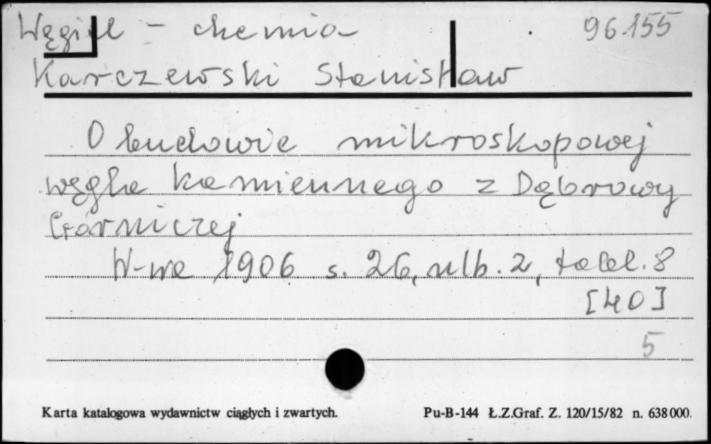 Węgiel - chemia 96.155
Karczewski Stanisław
O budowie mikroskopowej
węgla kamiennego z Dąbrowy
Górniczej
W-wa 1906 s. 26, nlb. 2, tabl. 8
[40]
5
Karta katalogowa wydawnictw ciągłych i zwartych. Pu-B-144 Ł.Z.Graf. Z. 120/15/82 n. 638000.